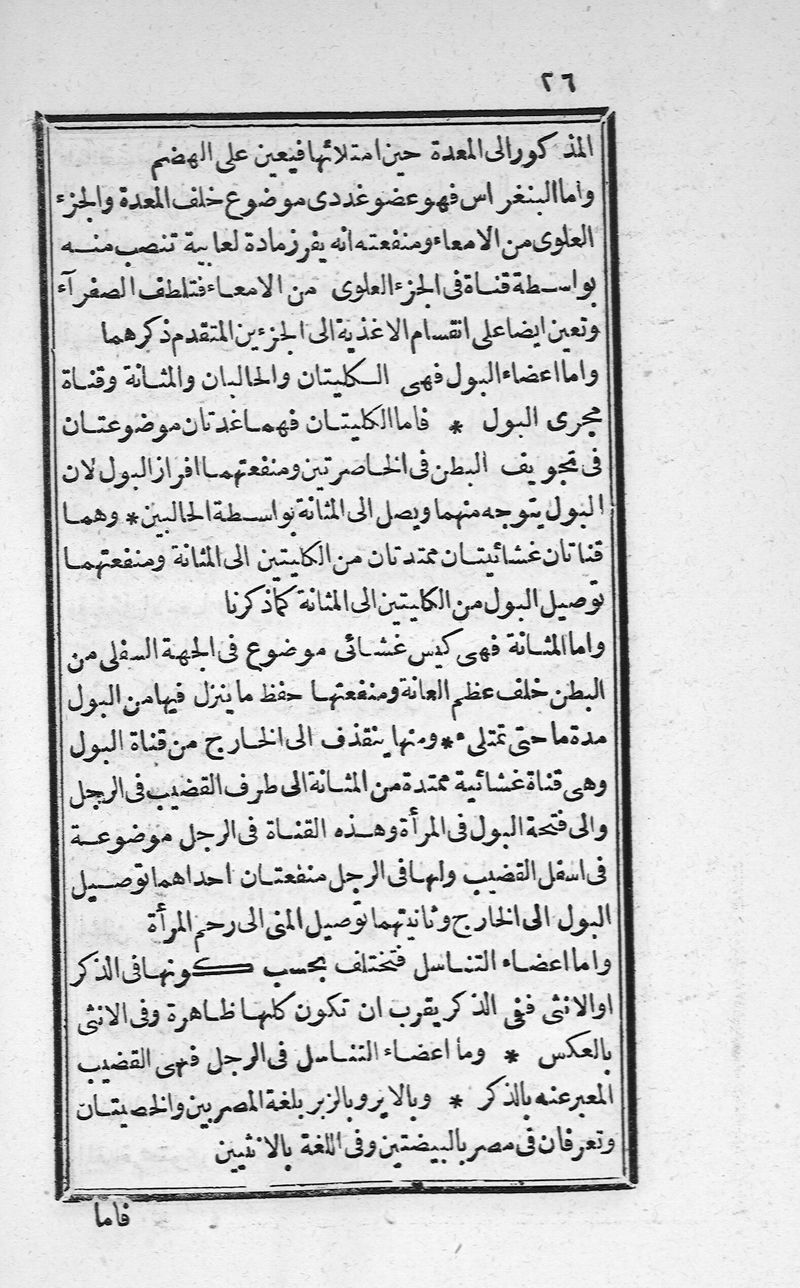 ٢٦
المذكور الى المعدة حين امتلائها فيعين على الهضم
واما البنغراس فهو عضو غددى موضوع خلف المعدة والجزء
العلوى من الامعاء ومنفعته انه يفرز مادة لعابية تنصب منه
بواسطة قناة فى الجزء العلوى من الامعاء فتلطف الصفرآء
وتعين ايضا على انقسام الاغذية الى الجزءين المتقدم ذكرهما
واما اعضاء البول فهى الكليتان والحالبان والمثانة وقناة
مجرى البول * فاما الكليتان فهما غدتان موضوعتان
فى تجويف البطن فى الخاصرتين ومنفعتهما افراز البول لان
البول يتوجه منهما ويصل الى المثانة بواسطة الحالبين * وهما
قناتان غشائيتان ممتدتان من الكليتين الى المثانة ومنفعتهما
توصيل البول من الكليتين الى المثانة كما ذكرنا
واما المثانة فهى كيس غشائى موضوع فى الجهة السفلى من
البطن خلف عظم العانة ومنفعتها حفظ ما ينزل فيها من البول
مدة ما حتى تمتلىء * ومنها ينقذف الى الخارج من قناة البول
وهى قناة غشائية ممتدة من المثانة الى طرف القضيب فى الرجل
والى فتحة البول فى المرأة وهذه القناة فى الرجل موضوعة
فى اسفل القضيب ولها فى الرجل منفعتان احداهما توصيل
البول الى الخارج وثانيتهما توصيل المنى الى رحم المرأة
واما اعضاء التناسل فتختلف بحسب كونها فى الذكر
او الانثى ففى الذكر يقرب ان تكون كلها ظاهرة وفى الانثى
بالعكس * وما اعضاء التناسل فى الرجل فهى القضيب
المعبر عنه بالذكر * وبالاير وبالزبر بلغة المصريين والخصيتان
وتعرفان فى مصر بالبيضتين وفى اللغة بالانثيين
فاما